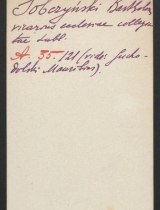 Sobczyński Barthol.
vicarius ecclesiae collegia-
tae Lubl.
A. 35./21 (vide: Sucho-
dolski Mauritius).